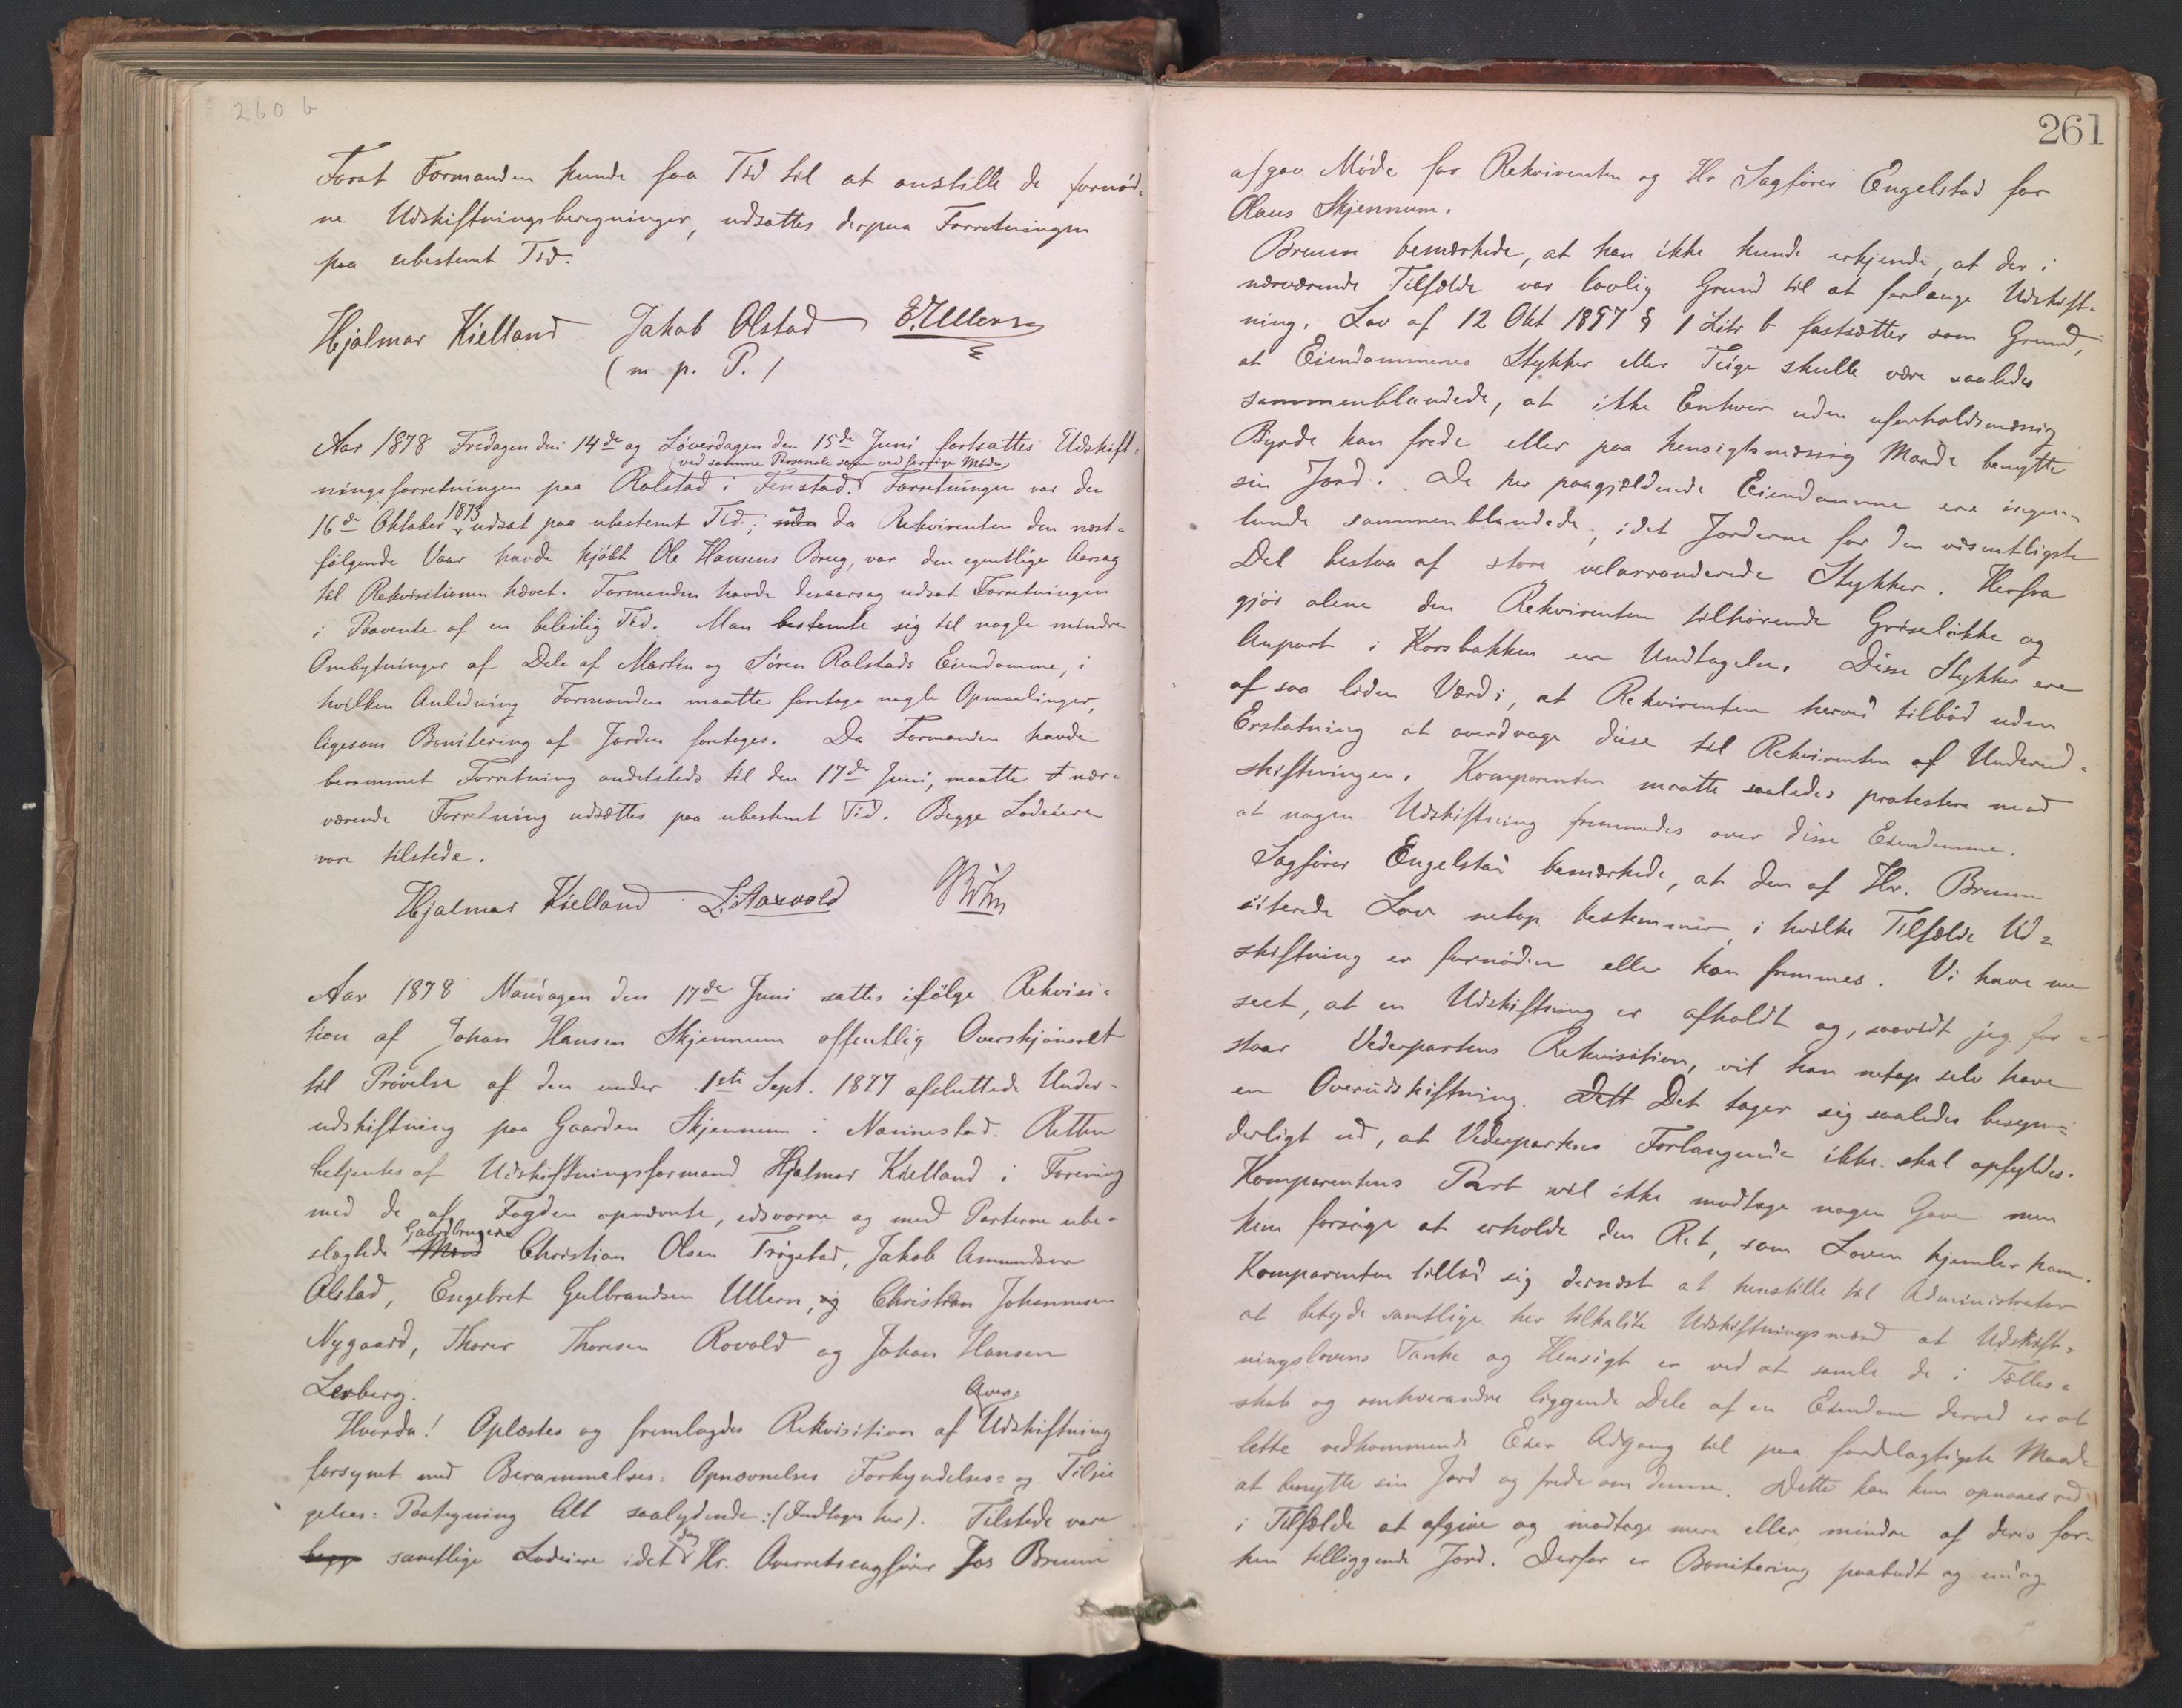 260 b
Forat Formanden kunde faa Tid til at anstille de fornød-
ne Udskiftningsberegninger, udsattes derpaa Forretningen
paa ubestemt Tid.
Hjalmar Kielland Jakob Olstad E. Ullern
(m. p. P.)
Aar 1878 Fredagen den 14de og Løverdagen den 15de Juni fortsattes Udskift-
(ved samme Personale som ved forrige Møde)
ningsforretningen paa Rolstad i Fenstad. Forretningen var den
16de Oktober 1873 udsat paa ubestemt Tid; da Rekvirenten den næst-
følgende Vaar havde kjøbt Ole Hansens Brug, var den egentlige Aarsag
til Rekvisitionen hævet. Formanden havde desaarsag udsat Forretningen
i Paavente af en beleilig Tid. Man bestemte sig til nogle mindre
Ombytninger af Dele af Martin og Søren Rolstads Eiendomme, i
hvilken Anledning Formanden maatte foretage nogle Opmaalinger,
ligesom Bonitering af Jorden foretoges. Da Formanden havde
berammet Forretning andetsteds til den 17de Juni, maatte nær-
værende Forretning udsættes paa ubestemt Tid. Begge Lodeiere
vare tilstede.
Hjalmar Kielland
Aar 1878 Mandagen den 17de Juni sattes ifølge Rekvisi-
tion af Johan Hansen Skjennum offentlig Overskjønsret
til Prøvelse af den under 1ste Sept. 1877 afsluttede Under-
udskiftning paa Gaarden Skjennum i Nannestad. Retten
betjentes af Udskiftningsformand Hjalmar Kielland i Forening
med de af Fogden opnævnte, edsvorne og med Parterne ube-
Gaardbrugere
slægtede Mænd Christian Olsen Trøgstad, Jakob Amundsen
Olstad, Engebret Gulbrandsen Ullern, og Christian Johannesen
Nygaard, Thorer Thoresen Rovold og Johan Hansen
Lerberg.
Over-
Hvorda! Oplæstes og fremlagdes Rekvisition af Udskiftning
forsynet med Berammelses- Opnævnelses Forkyndelses- og Tilsi-
gelses- Paategning Alt saalydende: (Indtages her). Tilstede vare
begge samtlige Lodeiere idet Hr. Overretssagfører Jos Bruun
261
afgav Møde for Rekvirenten og Hr Sagfører Engelstad for
Olaus Skjennum.
Bruun bemærkede, at han ikke kunde erkjende, at der i
nærværende Tilfælde var lovlig Grund til at forlange Udskift-
ning. Lov af 12 Okt 1857 § 1 Litr b fastsætter som Grund,
at Eiendommenes Stykker eller Teige skulle være saaledes
sammenblandede, at ikke Enhver uden uforholdsmæssig
Byrde kan frede eller paa hensigtsmæssig Maade benytte
sin Jord. De her paagjældende Eiendomme ere ingen-
lunde sammenblandede, idet Jorderne for den væsentligste
Del bestaa af store velarronderede Stykker. Herfra
gjør alene den Rekvirenten tilhørende Griseløkke og
Anpart i Korsbakken en Undtagelse. Disse Stykker ere
af saa liden Værdi, at Rekvirenten herved tilbød uden
Erstatning at overdrage disse til Rekvirenten af Underud-
skiftningen. Komparenten maatte saaledes protestere mod
at nogen Udskiftning fremmedes over disse Eiendomme.
Sagfører Engelstad bemærkede, at den af Hr. Bruun
siterede Lov netop bestemmer, i hvilke Tilfælde Ud-
skiftning er fornøden eller kan fremmes. Vi have nu
seet, at en Udskiftning er afholdt og, saavidt jeg for-
staar Vederpartens Rekvisition, vil han netop selv have
en Overudskiftning. Dett Det tager sig saaledes besyn-
derligt ud, at Vederpartens Forlangende ikke skal opfyldes.
Komparentens Part vil ikke modtage nogen Gave men
kun forsøge at erholde den Ret, som Loven hjemler ham.
Komparenten tillod sig dernæst at henstille til Administrator
at betyde samtlige her tilkaldte Udskiftningsmænd at Udskift-
ningslovens Tanke og Hensigt er ved at samle de i Fælles-
skab og omhverandre liggende Dele af en Eiendom derved er at
lette vedkommende Eier Adgang til paa fordelagtigste Maade
at benytte sin Jord og frede om denne. Dette kan kun opnaaes ved
i Tilfælde at afgive og modtage mere eller mindre af deres for-
hen tilliggende Jord. Derfor er Bonitering paabudt og